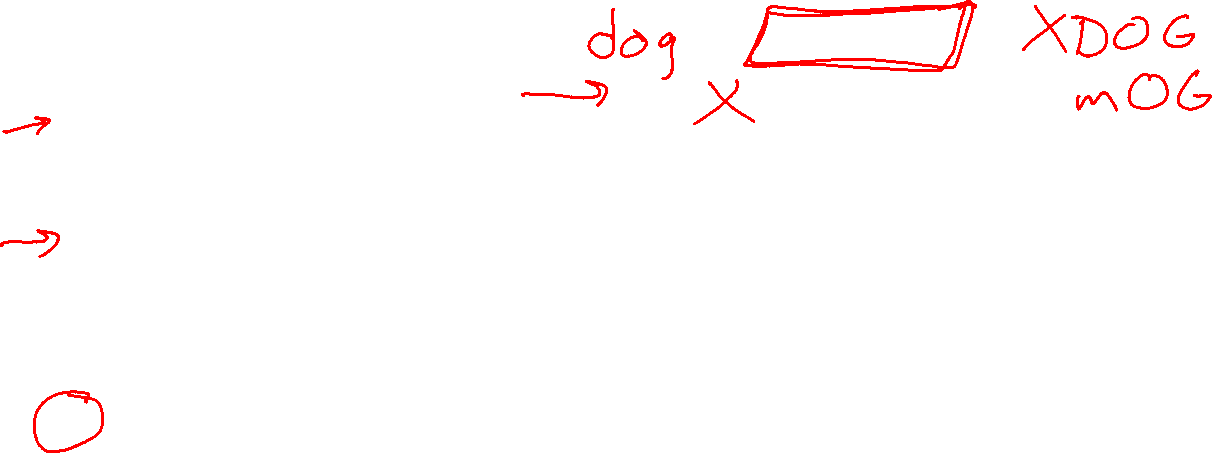 dog XDOG
X mOG